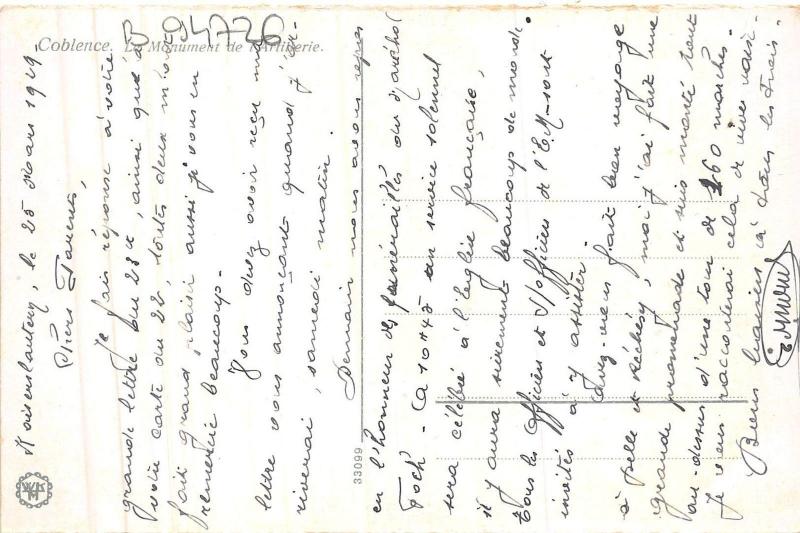 Coblence. Le Monument de l'Artillerie.
B 94726
Kaiserslautern, le 25 Mars 1929
Chers Parents,
Je fais réponse à votre
grande lettre du 23 ct, ainsi que à
votre carte du 22, toutes deux m'ont
fait grand plaisir aussi je vous en
remercie beaucoup.
Vous devez avoir reçu ma
lettre vous annonçant quand j'ar-
riverai, samedi matin.
Demain nous avons repos
33099
en l'honneur des funérailles du Maréchal
Foch - Ca 10H45 un service solennel
sera célébré à l'église française,
il y aura sûrement beaucoup de monde.
Tous les officiers et S/officiers de l'E.M. sont
invités à y assister.
Avez-vous fait bon voyage
à Delle et Réchésy, moi j'ai fait une
grande promenade et suis monté tout
au-dessus d'une tour de 260 marches.
Je vous raconterai cela de vive voix.
Bons baisers à tous les trois.